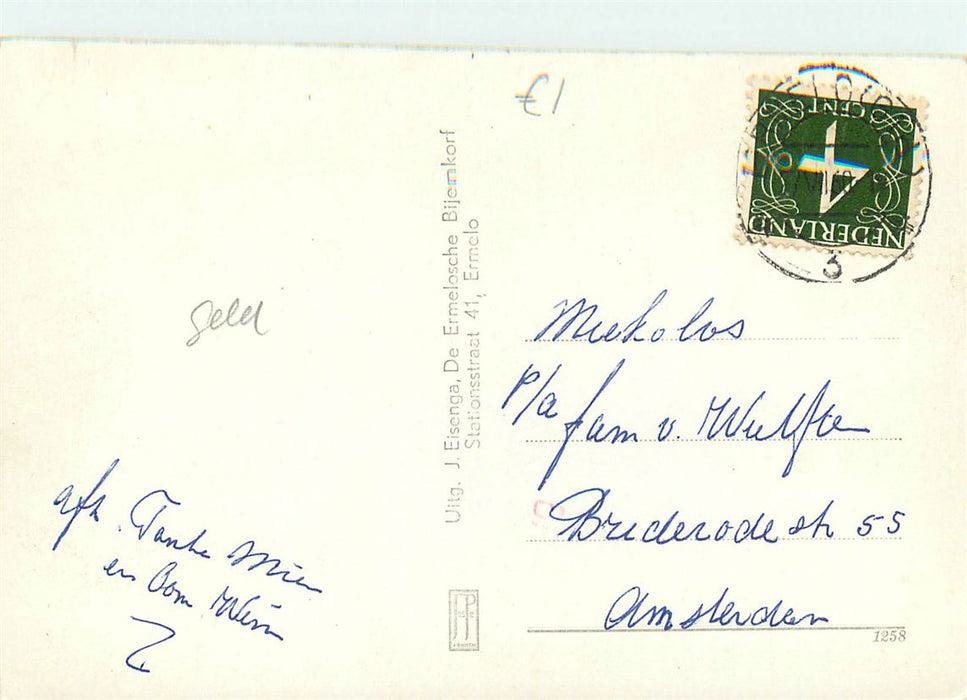 €1
CENT
4
NEDERLAND
3
geld
Uitg. J. Eisenga, De Ermelosche Bijenkorf
Stationsstraat 41, Ermelo
Miekolos
p/a fam v. Wulften
Brederodestr 55
Amsterdam
1258
afz. Tante Mien
en Oom Wim